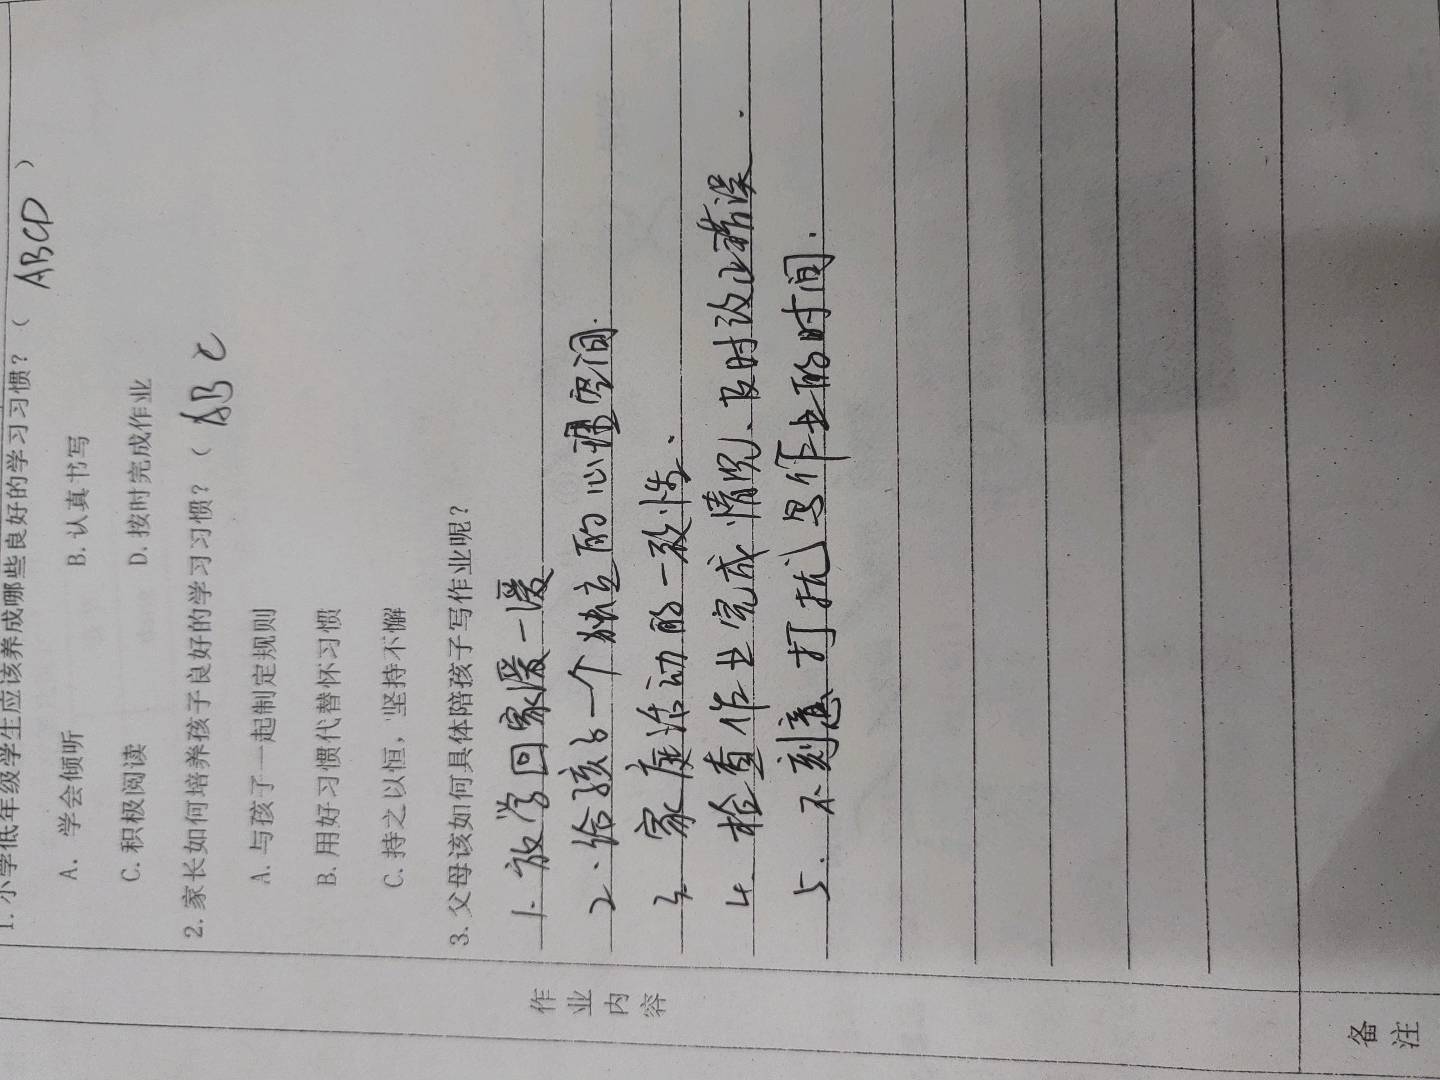 1. 小学低年级学生应该养成哪些良好的学习习惯？（ ABCD ）
A. 学会倾听 B. 认真书写
C. 积极阅读 D. 按时完成作业
2. 家长如何培养孩子良好的学习习惯？（ ABC
A. 与孩子一起制定规则
B. 用好习惯代替怀习惯
C. 持之以恒，坚持不懈
3. 父母该如何具体陪孩子写作业呢？
1. 放学回家缓一缓
2. 给孩子一个独立的心理空间.
3. 家庭活动的一致性.
4. 检查作业完成情况、及时改正错误.
5. 不刻意打扰写作业的时间.
作业内容
备注